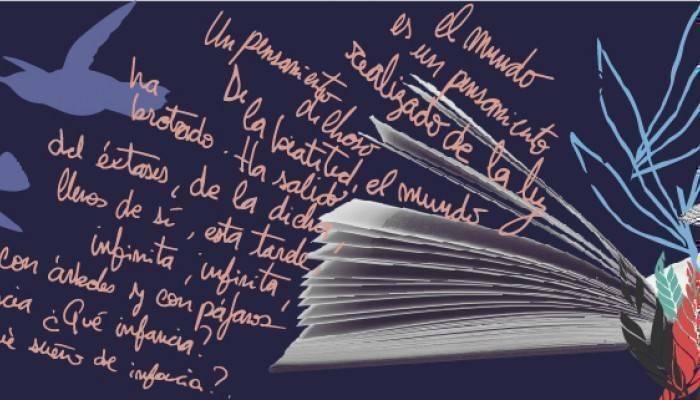 el mundo
es un pensamiento
realizado de la luz
Un pensamiento
dichoso
De la beatitud, el mundo
ha
brotado. Ha salido
del éxtasis, de la dicha,
llenos de sí, esta tarde
infinita, infinita,
con árboles y con pájaros
ncia ¿Qué infancia?
ué sueño de infancia?